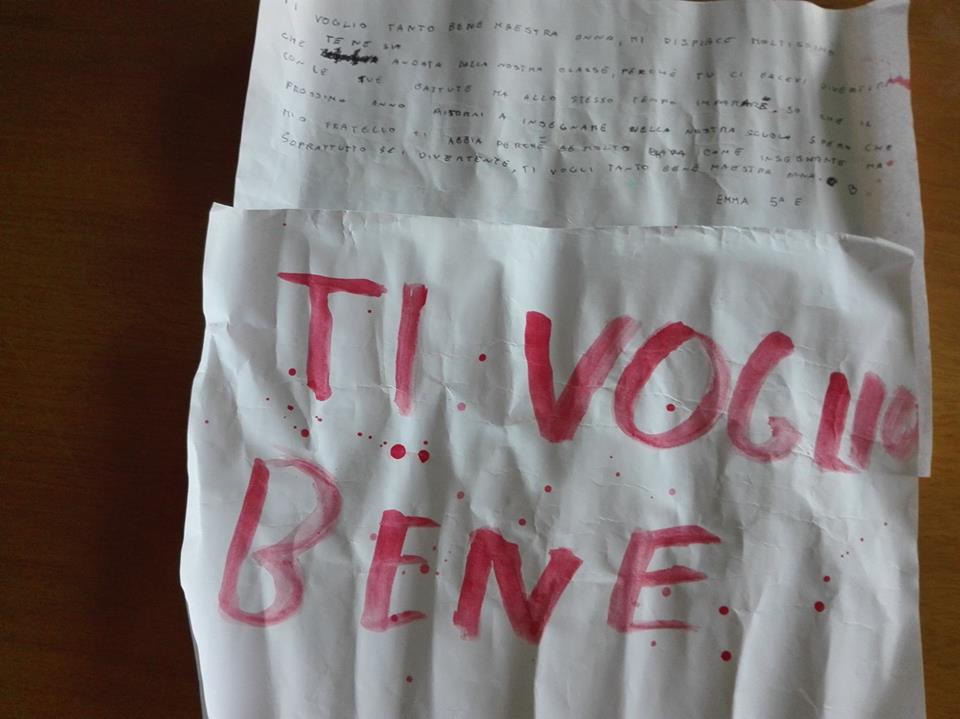 TI VOGLIO TANTO BENE MAESTRA ANNA, MI DISPIACE MOLTISSIMO
CHE TE NE SIA ANDATA DALLA NOSTRA CLASSE, PERCHÉ TU CI FACEVI DIVERTIRE
CON LE TUE BATTUTE MA ALLO STESSO TEMPO IMPARARE. SO CHE IL
PROSSIMO ANNO RITORAI A INSEGNARE NELLA NOSTRA SCUOLA SPERO CHE
MIO FRATELLO TI ABBIA PERCHÉ SE MOLTO BRAVA COME INSEGNANTE MA
SOPRATTUTTO SEI DIVERTENTE, TI VOGLI TANTO BENE MAESTRA ANNA.
EMMA 5ª E
TI VOGLIO
BENE